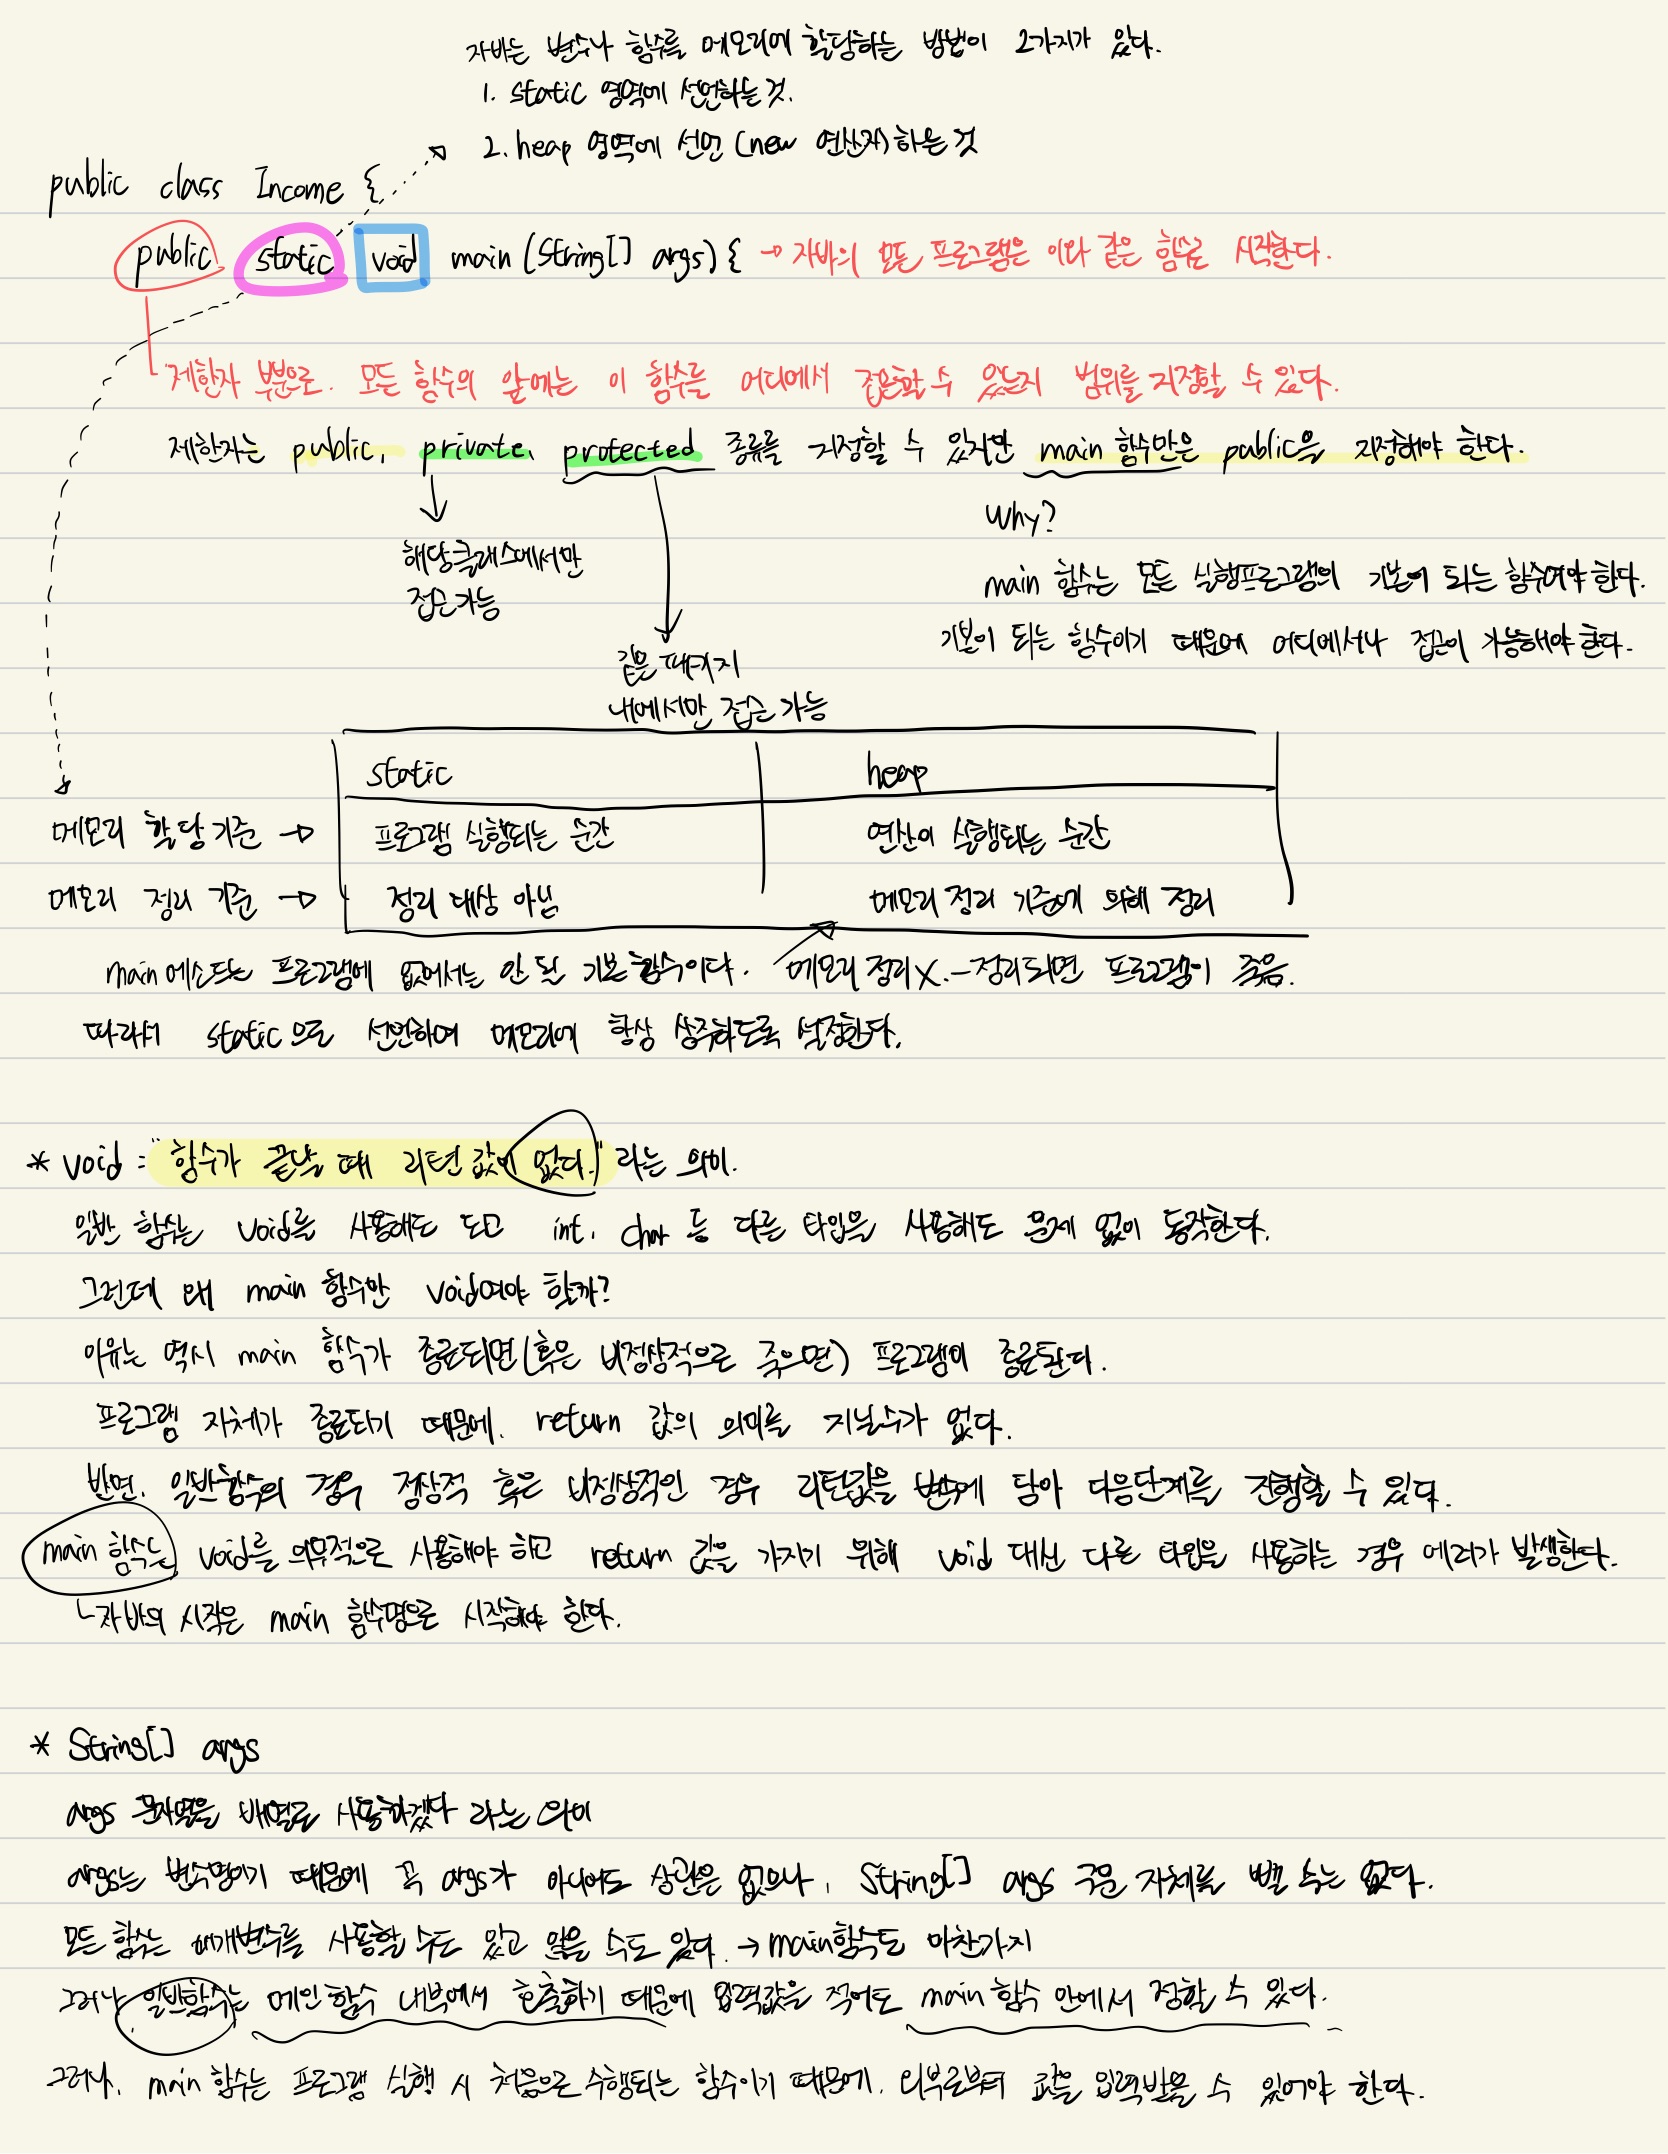 자바는 변수나 함수를 메모리에 할당하는 방법이 2가지가 있다.
1. static 영역에 선언하는 것.
2. heap 영역에 선언 (new 연산자)하는 것
public class Income {
public static void main (String[] args) { → 자바의 모든 프로그램은 이와 같은 함수로 시작한다.
제한자 부분으로. 모든 함수의 앞에는 이 함수를 어디에서 접근할 수 있는지 범위를 지정할 수 있다.
제한자는 public, private, protected 종류를 지정할 수 있지만 main 함수만은 public을 지정해야 한다.
Why?
해당클래스에서만
접근가능
main 함수는 모든 실행프로그램의 기본이 되는 함수여야 한다.
기본이 되는 함수이기 때문에 어디에서나 접근이 가능해야 한다.
같은 패키지
내에서만 접근 가능
static heap
메모리 할당 기준 → 프로그램 실행되는 순간 연산이 실행되는 순간
메모리 정리 기준 → 정리 대상 아님 메모리 정리 기준에 의해 정리
main 메소드는 프로그램에 없어서는 안 될 기본 함수이다. 메모리 정리 X. - 정리되면 프로그램이 죽음.
따라서 static으로 선언하여 메모리에 항상 상주하도록 설정한다.
* void : "함수가 끝날 때 리턴 값이 없다." 라는 의미.
일반 함수는 void를 사용해도 되고 int, char 등 다른 타입을 사용해도 문제 없이 동작한다.
그런데 왜 main 함수만 void여야 할까?
이유는 역시 main 함수가 종료되면(혹은 비정상적으로 죽으면) 프로그램이 종료된다.
프로그램 자체가 종료되기 때문에. return 값의 의미를 지닐수가 없다.
반면. 일반함수의 경우 정상적 혹은 비정상적인 경우 리턴값을 변수에 담아 다음단계를 진행할 수 있다.
main 함수는 void를 의무적으로 사용해야 하고 return 값을 가지기 위해 void 대신 다른 타입을 사용하는 경우 에러가 발생한다.
ㄴ자바의 시작은 main 함수명으로 시작해야 한다.
* String[] args
args 문자열을 배열로 사용하겠다 라는 의미
args는 변수명이기 때문에 꼭 args가 아니어도 상관은 없으나, String[] args 구문 자체를 뺄 수는 없다.
모든 함수는 매개변수를 사용할 수도 있고 않을 수도 있다. → main함수도 마찬가지
그러나 일반함수는 메인 함수 내부에서 호출하기 때문에 입력값을 적어도 main 함수 안에서 정할 수 있다.
그러나. main 함수는 프로그램 실행 시 처음으로 수행되는 함수이기 때문에. 외부로부터 값을 입력받을 수 있어야 한다.